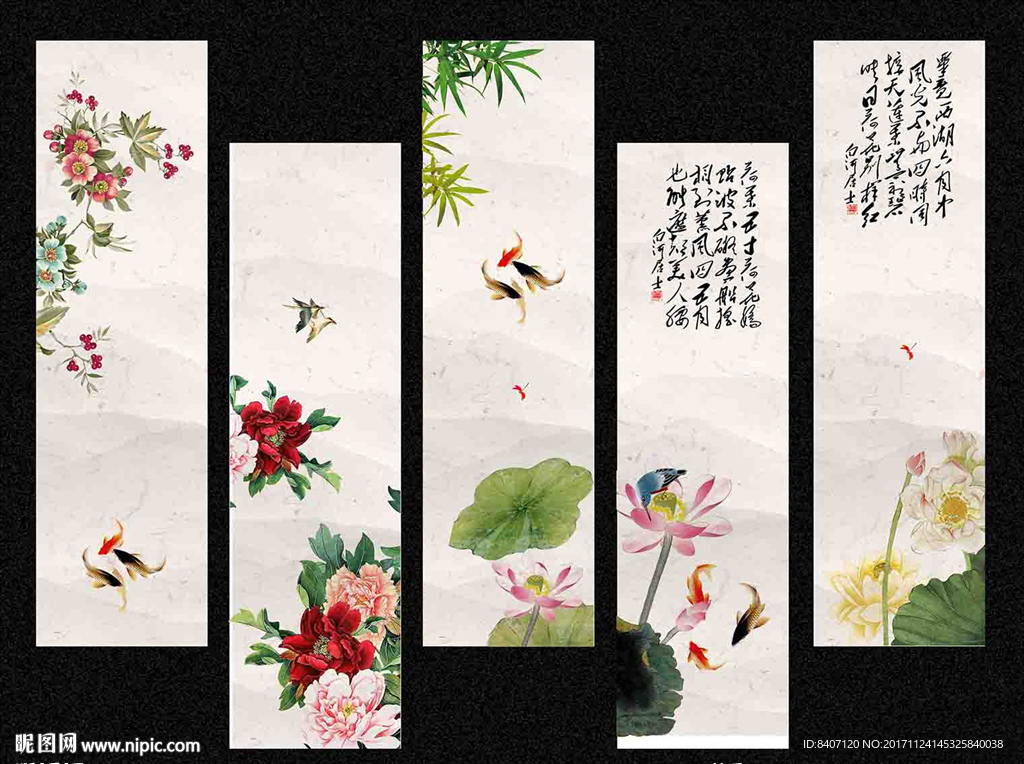 畢竟西湖六月中
風光不与四時同
接天蓮葉無窮碧
映日荷花别樣红
白河居士
荷葉五寸荷花嬌
貼波不礙畫船摇
相到薰風四五月
也能遮却美人腰
白河居士
昵图网 www.nipic.com
ID:8407120 NO:20171124145325840038